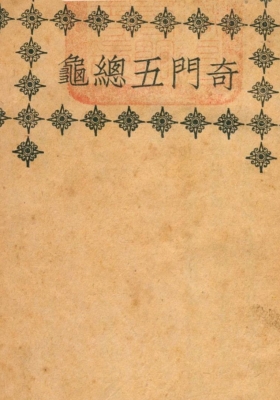 奇門五總龜